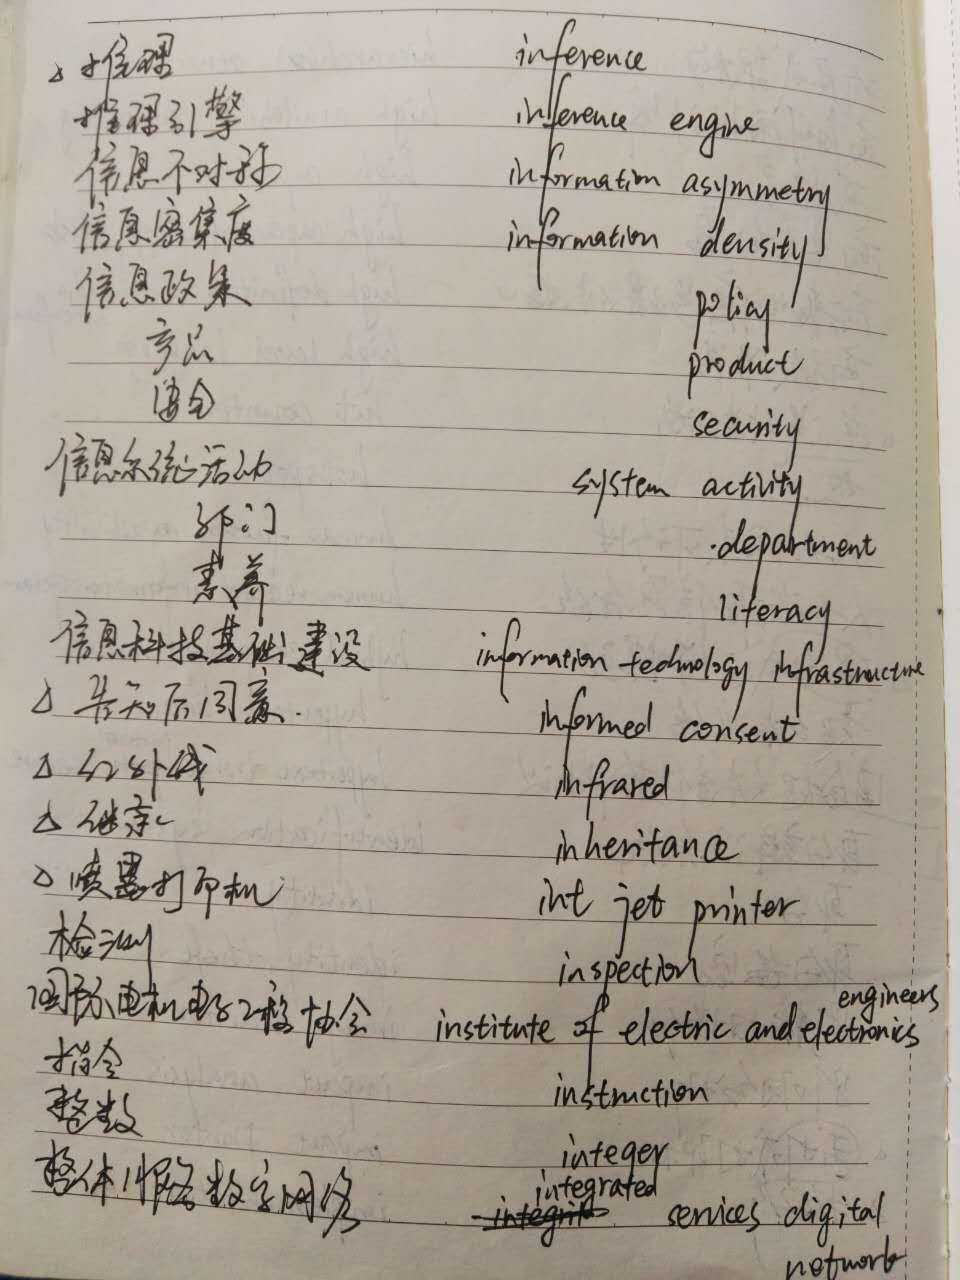 △ 推理 inference
推理引擎 inference engine
信息不对称 information asymmetry
信息密集度 information density
信息政策 policy
产品 product
安全 security
信息系统活动 system activity
部门 department
素养 literacy
信息科技基础建设 information technology infrastructure
△ 告知后同意. informed consent
△ 红外线 infrared
△ 继承 inheritance
△ 喷墨打印机 int jet printer
检测 inspection
国际电机电子工程协会 institute of electric and electronics engineers
指令 instruction
整数 integer
整体服务数字网络 integrated services digital
network